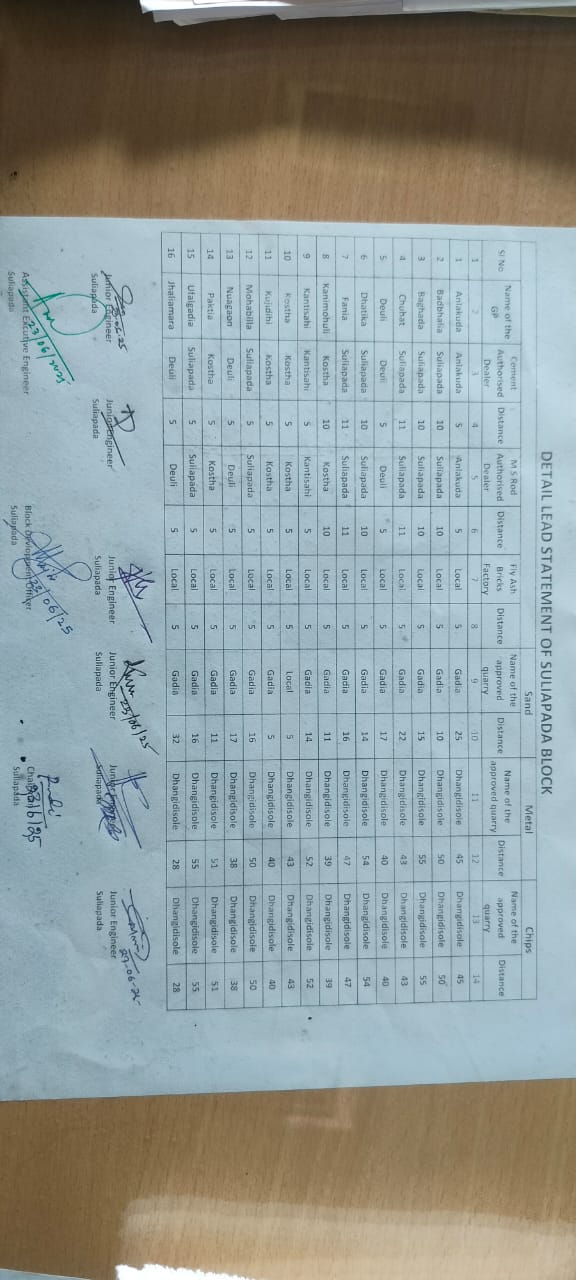 DETAIL LEAD STATEMENT OF SULIAPADA BLOCK
Cement M S Rod Fly Ash Sand Metal Chips
Sl No Name of the GP Authorised Dealer Distance Authorised Dealer Distance Bricks Factory Distance Name of the approved quarry Distance Name of the approved quarry Distance Name of the approved quarry Distance
1 2 3 4 5 6 8 9 10 11 12 13 14
1 Anlakuda Anlakuda 5 Anlakuda 5 Local 5 Gadia 25 Dhangidisole 45 Dhangidisole 45
2 Badbhalia Suliapada 10 Suliapada 10 Local 5 Gadia 10 Dhangidisole 50 Dhangidisole 50
3 Baghada Suliapada 10 Suliapada 10 Local 5 Gadia 15 Dhangidisole 55 Dhangidisole 55
4 Chuhat Suliapada 11 Suliapada 11 Local 5 Gadia 22 Dhangidisole 43 Dhangidisole 43
5 Deuli Deuli 5 Deuli 5 Local 5 Gadia 17 Dhangidisole 40 Dhangidisole 40
6 Dhatika Suliapada 10 Suliapada 10 Local 5 Gadia 14 Dhangidisole 54 Dhangidisole 54
7 Fania Suliapada 11 Suliapada 11 Local 5 Gadia 16 Dhangidisole 47 Dhangidisole 47
8 Kanimohuli Kostha 10 Kostha 10 Local 5 Gadia 11 Dhangidisole 39 Dhangidisole 39
9 Kantisahi Kantisahi 5 Kantisahi 5 Local 5 Gadia 14 Dhangidisole 52 Dhangidisole 52
10 Kostha Kostha 5 Kostha 5 Local 5 Local 5 Dhangidisole 43 Dhangidisole 43
11 Kujidihi Kostha 5 Kostha 5 Local 5 Gadia 5 Dhangidisole 40 Dhangidisole 40
12 Mohabilla Suliapada 5 Suliapada 5 Local 5 Gadia 16 Dhangidisole 50 Dhangidisole 50
13 Nuagaon Deuli 5 Deuli 5 Local 5 Gadia 17 Dhangidisole 38 Dhangidisole 38
14 Paktia Kostha 5 Kostha 5 Local 5 Gadia 11 Dhangidisole 51 Dhangidisole 51
15 Ufalgadia Suliapada 5 Suliapada 5 Local 5 Gadia 16 Dhangidisole 55 Dhangidisole 55
16 Jhaliamara Deuli 5 Deuli 5 Local 5 Gadia 32 Dhangidisole 28 Dhangidisole 28
23/06/25
Junior Engineer Junior Engineer Junior Engineer Junior Engineer Junior Engineer
Suliapada Suliapada Suliapada Suliapada Suliapada Suliapada
23/06/2025 23/06/25
Assistant Excutive Engineer Block Devlopment Officer
Suliapada Suliapada Suliapada